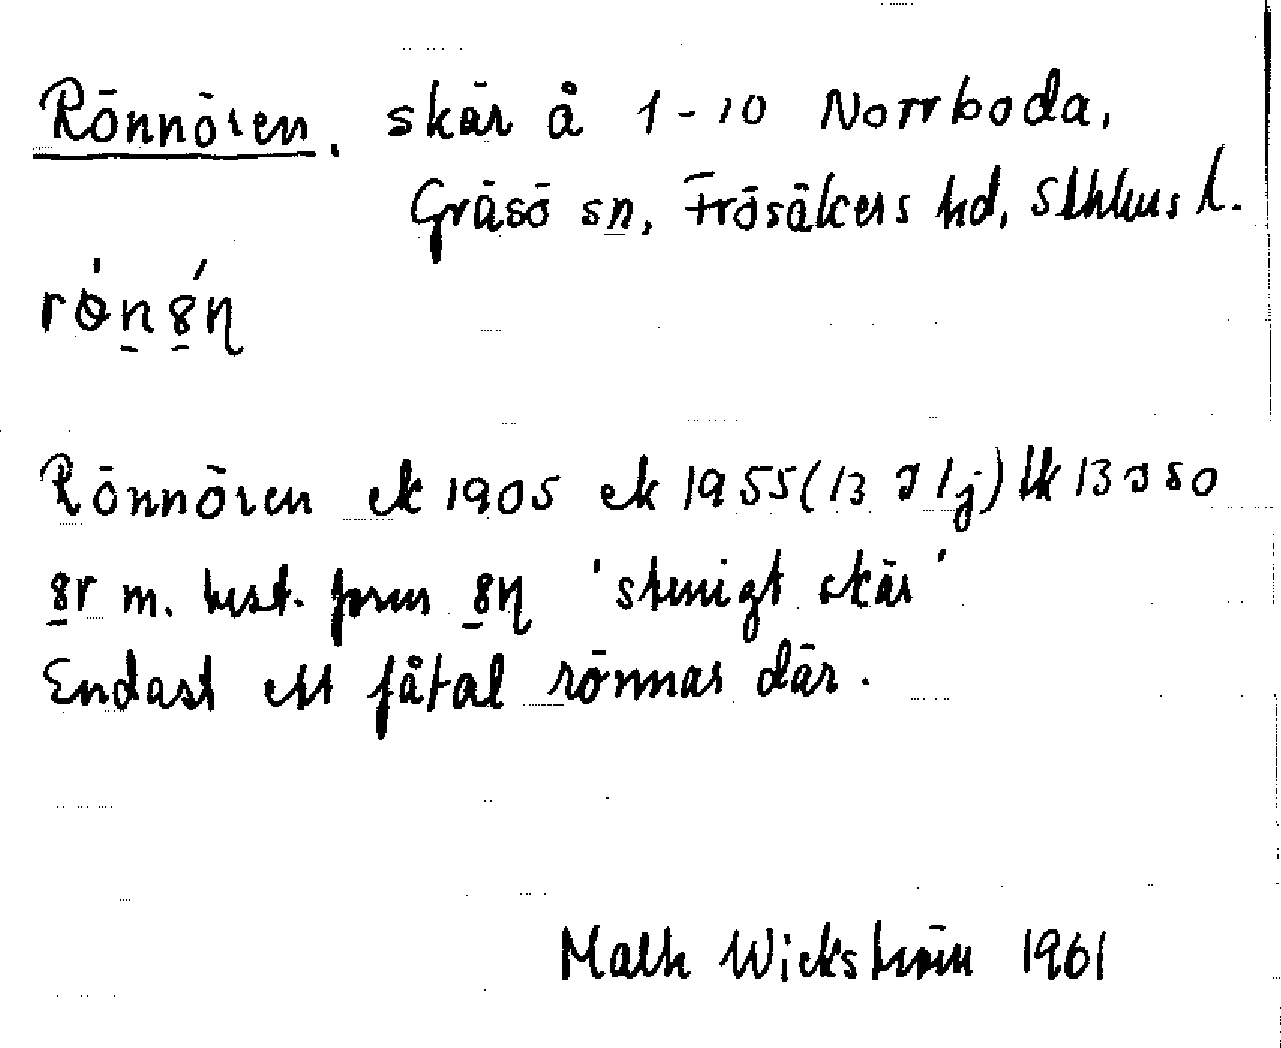 Rönnören, skär å 1-10 Norrboda,
Gräsö sn, Frösåkers hd, Sthlms l.
Rönnören ek 1905 ek 1955 (13 J 1j) lk 13 J SO
m. best. form 'stenigt skär'
Endast ett fåtal rönnar där.
Math Wickström 1961